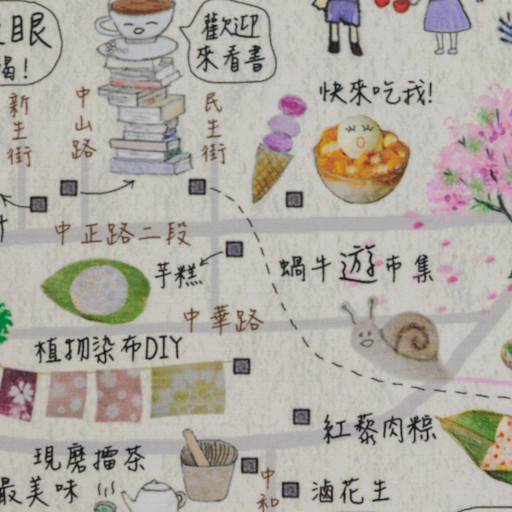 眼
喝!
歡迎
來看書
快來吃我!
新生街
中山路
民生街
中正路二段
芋糕
蝸牛遊市集
中華路
植物染布DIY
紅藜肉粽
現磨擂茶
最美味
中和
滷花生